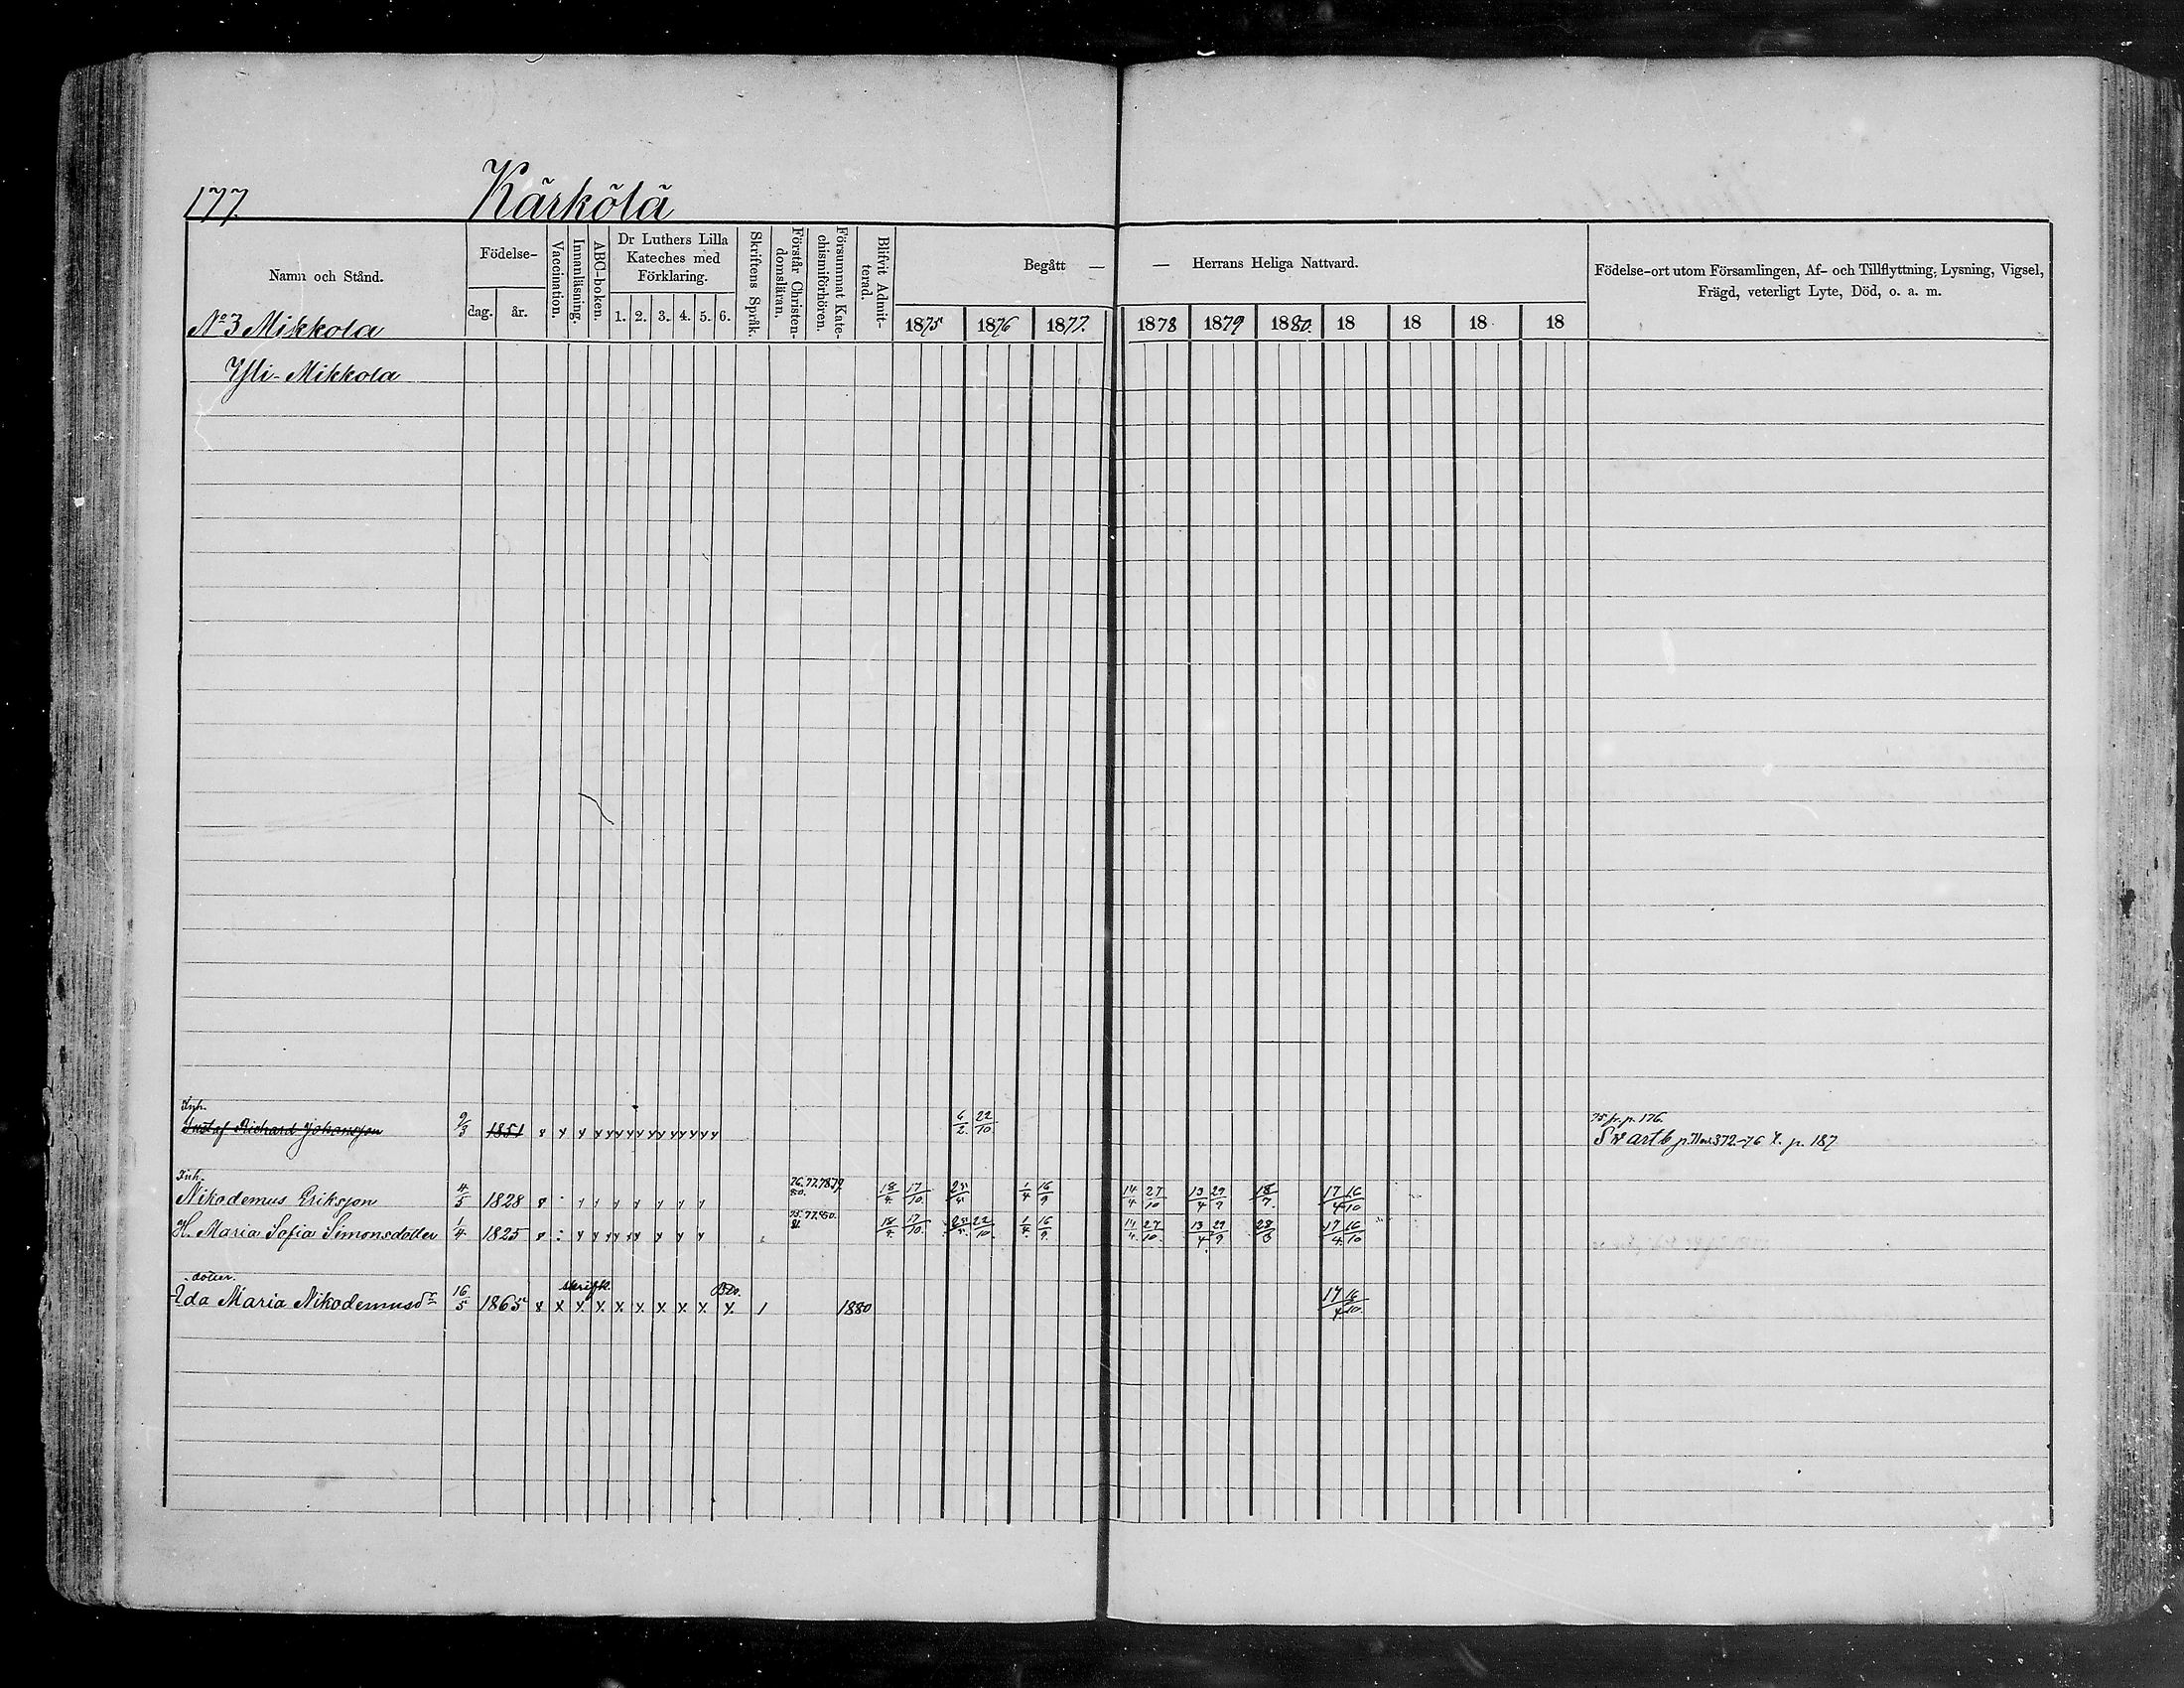 177.
Kärkölä
Namn och Stånd.
Födelse-
dag.
år.
Vaccination.
Innanläsning.
ABC-boken.
Dr Luthers Lilla
Kateches med
Förklaring.
1. 2. 3. 4. 5. 6.
Skriftens Språk.
Förstår Christen-
domsläran.
Försummat Kate-
chismiförhören.
Blifvit Admit-
terad.
Begått —
— Herrans Heliga Nattvard.
Födelse-ort utom Församlingen, Af- och Tillflyttning, Lysning, Vigsel,
Frägd, veterligt Lyte, Död, o. a. m.
1875 1876 1877. 1878 1879 1880. 18 18 18 18
No 3 Mikkola
Yli-Mikkola
Inh.
Gustaf Richard Johansson 9/3 1851 6/2. 22/10.
75 fr. p. 176.
p. 187
Inh.
Nikodemus Eriksson 4/5 1828 76. 77. 78. 79. 80. 18/4. 17/10. 1/4 16/9 14/4 27/10 13/4 29/9 18/7. 17/4 16/10
H. Maria Sofia Simonsdotter 1/4 1825 18/4. 17/10. 22/10 1/4. 16/9. 14/4. 27/10. 13/4. 29/9 17/4. 16/10
dotter.
Ida Maria Nikodemusdr 16/5 1865 1880 17/4 16/10.